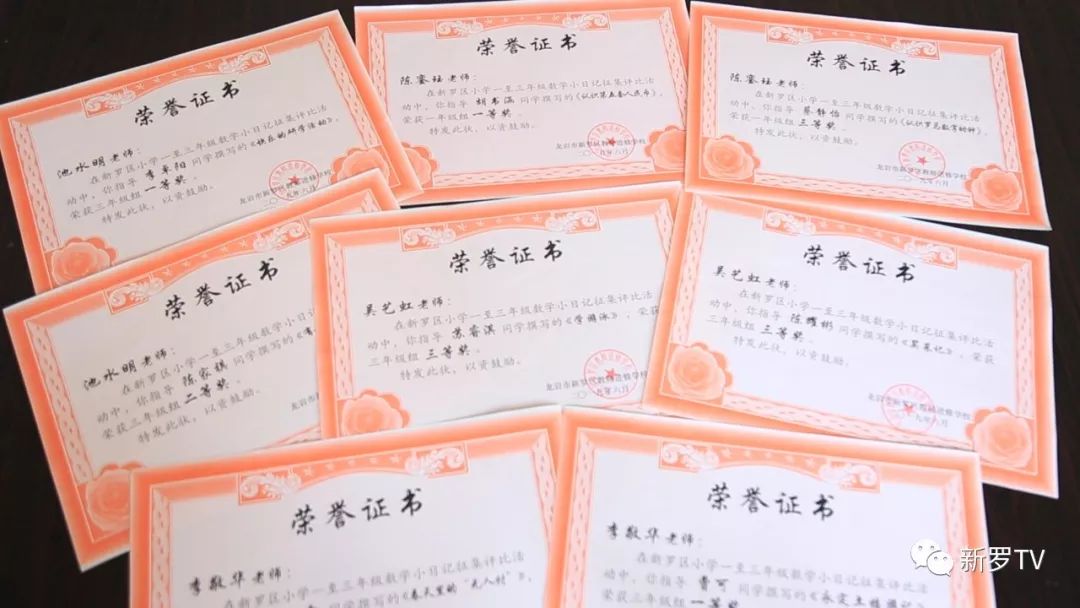 荣誉证书
池水明老师：
在新罗区小学一至三年级数学小日记征集评比活
动中，你指导 李卓阳 同学撰写的《快乐的研学活动》，
荣获三年级组 一等奖。
特发此状，以资鼓励。
龙岩市新罗区教师进修学校
二〇一九年六月
荣誉证书
陈銮瑶老师：
在新罗区小学一至三年级数学小日记征集评比活
动中，你指导 胡书涵 同学撰写的《认识第五套人民币》，
荣获一年级组 一等奖。
特发此状，以资鼓励。
龙岩市新罗区教师进修学校
二〇一九年六月
荣誉证书
陈銮瑶老师：
在新罗区小学一至三年级数学小日记征集评比活
动中，你指导 蔡静怡 同学撰写的《认识罗马数字的钟》，
荣获一年级组 三等奖。
特发此状，以资鼓励。
龙岩市新罗区教师进修学校
二〇一九年六月
荣誉证书
池水明老师：
在新罗区小学一至三年级数学小日记征集评比活
动中，你指导 陈家祺 同学撰写的《
荣获三年级组 二等奖。
特发此状，以资鼓励。
龙岩市新
荣誉证书
吴艺虹老师：
在新罗区小学一至三年级数学小日记征集评比活
动中，你指导 苏睿淇 同学撰写的《学游泳》，荣获
三年级组 三等奖。
特发此状，以资鼓励。
龙岩市新罗区教师进修学校
二〇一九年六月
荣誉证书
吴艺虹老师：
在新罗区小学一至三年级数学小日记征集评比活
动中，你指导 陈耀彬 同学撰写的《买菜记》，荣获
三年级组 三等奖。
特发此状，以资鼓励。
龙岩市新罗区教师进修学校
二〇一九年六月
荣誉证书
李敬华老师：
在新罗区小学一至三年级数学小日记征集评比活
同学撰写的《春天里的
荣誉证书
李敬华老师：
在新罗区小学一至三年级数学小日记征集评比活
动中，你指导 曹可 同学撰写的《永定土楼游记》
荣获三年级组 一等奖
新罗TV